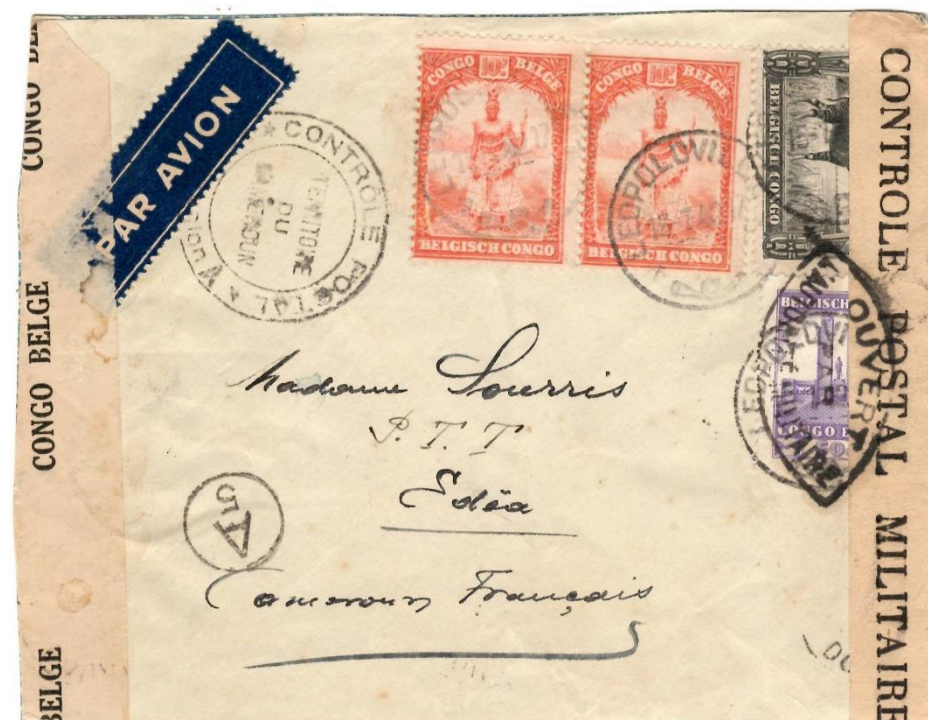 CONGO BELGE
CONGO BELGE
BELGE
PAR AVION
CONTROLE POSTAL
TERRITOIRE
DU
CAMEROUN
CONGO 10 BELGE
BELGISCH CONGO
CONGO 10 BELGE
BELGISCH CONGO
LEOPOLDVILLE
BELGISCH CONGO
BELGISCH
CONGO B
OUVERT
MILITAIRE
CONTROLE POSTAL MILITAIRE
Madame Sourris
P. T. T
Edéa
Cameroun Français
A
5